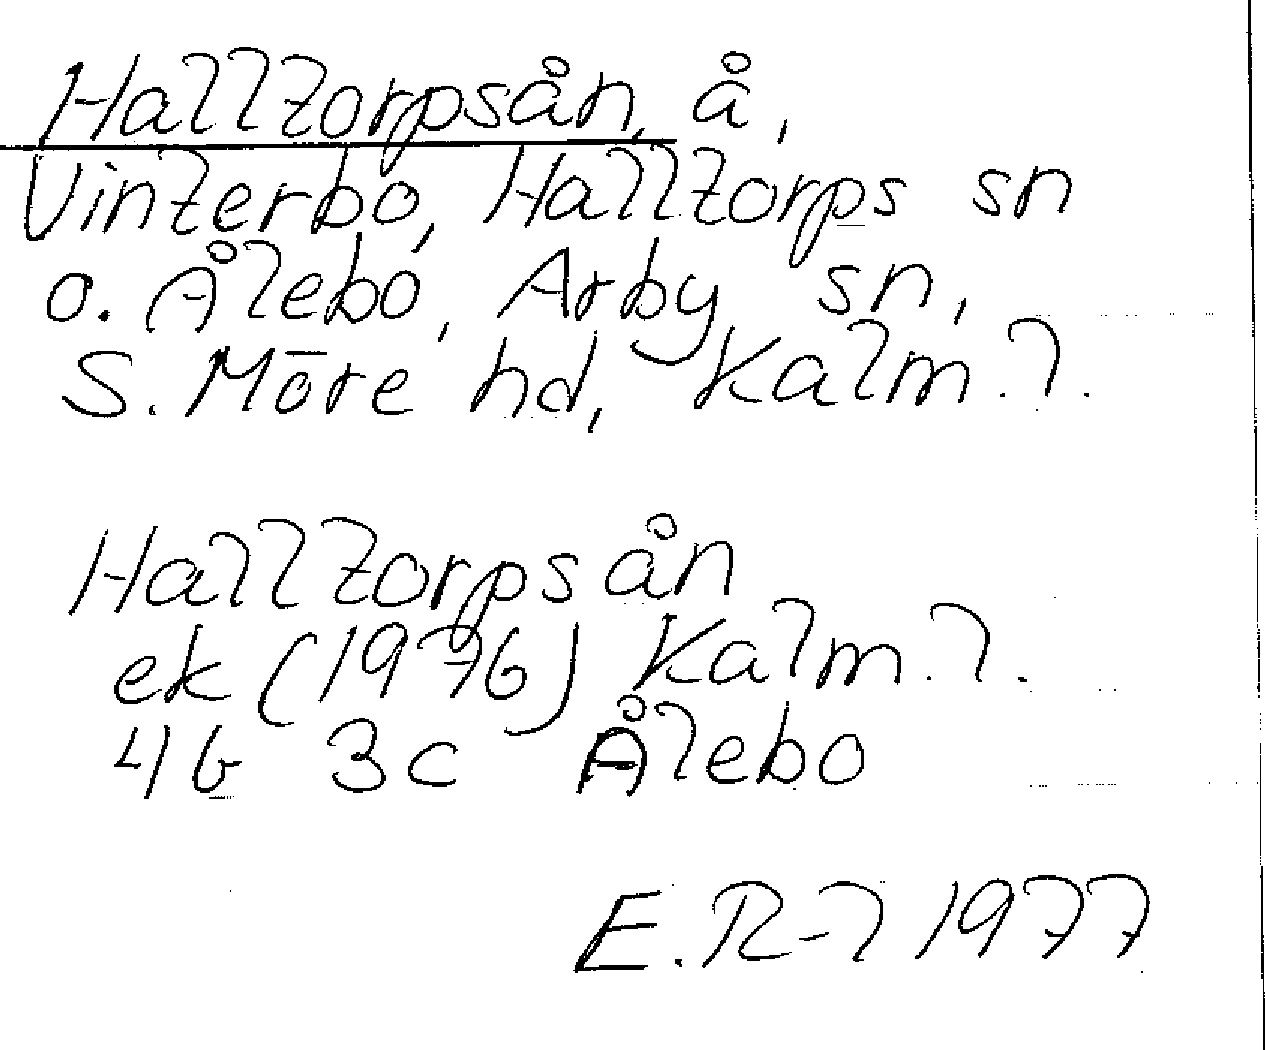 Halltorpsån, å,
Vinterbo, Halltorps sn
o. Ålebo, Arby sn,
S. Möre hd, Kalm. l.
Halltorpsån
ek (1976) Kalm. l.
4G 3c Ålebo
E. R-l 1977